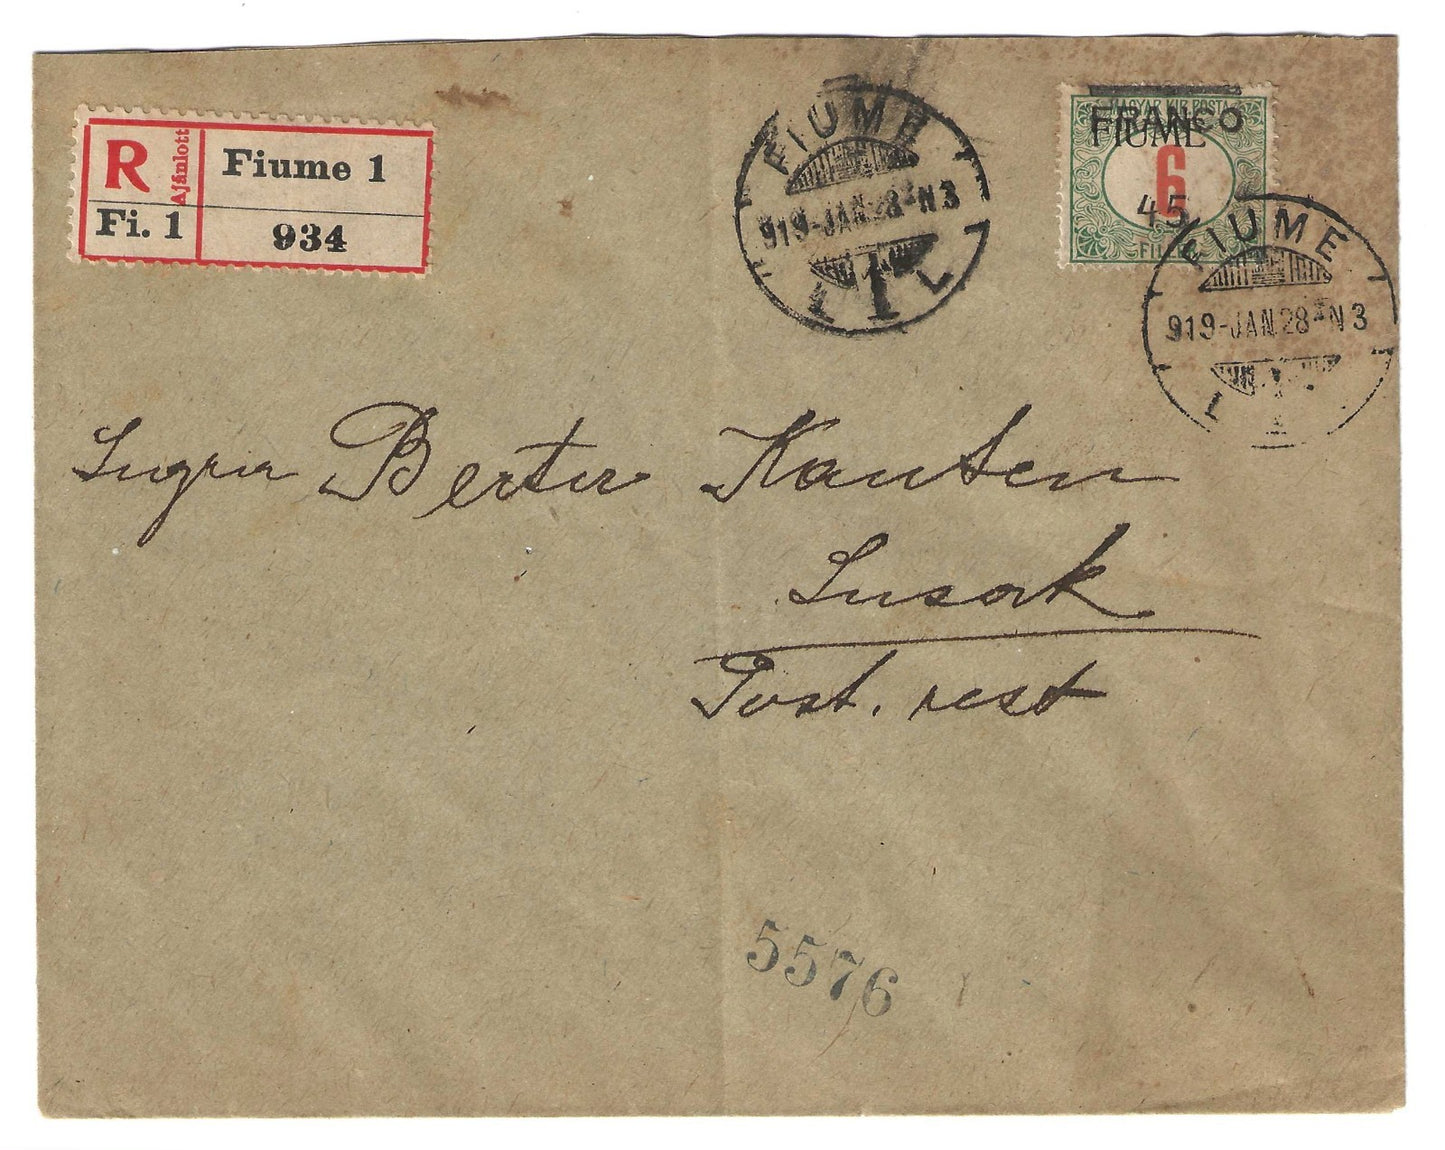 R Ajánlott Fiume 1
Fi. 1 934
FIUME
919-JAN.28-N3
1 1 L
MAGYAR KIR. POSTA
FRANCO
FIUME
6
45
FIUME
919-JAN.28-N3
1 1
Berta Kauten
Susak
Post. rest
5576